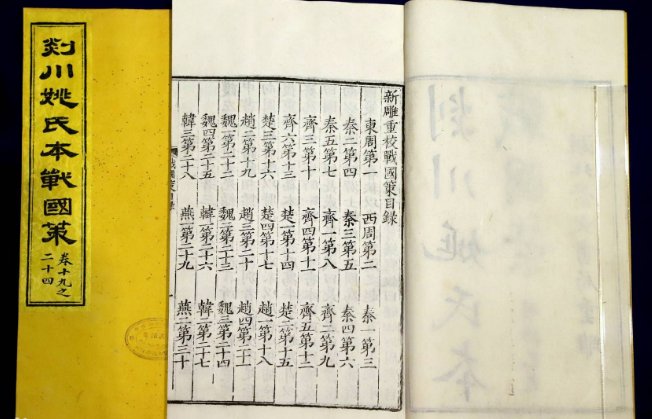 剡川姚氏本戰國策
卷十九之
二十四
新雕重校戰國策目録
東周第一 西周第二 秦一第三
秦二第四 秦三第五 秦四第六
秦五第七 齊一第八 齊二第九
齊三第十 齊四第十一 齊五第十二
齊六第十三 楚一第十四 楚二第十五
楚三第十六 楚四第十七 趙一第十八
趙二第十九 趙三第二十 趙四第二十一
魏一第二十二 魏二第二十三 魏三第二十四
魏四第二十五 韓一第二十六 韓二第二十七
韓三第二十八 燕一第二十九 燕二第三十
剡川姚氏本